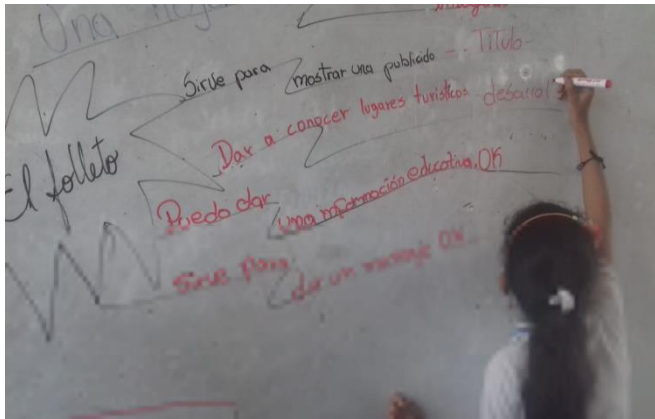 Una hoja
Sirve para mostrar una publicida -- Titulo
El folleto
Dar a conocer lugares turisticos desarrol
Puedo dar una información educativa. OK
Sirve para dar un mensaje OK